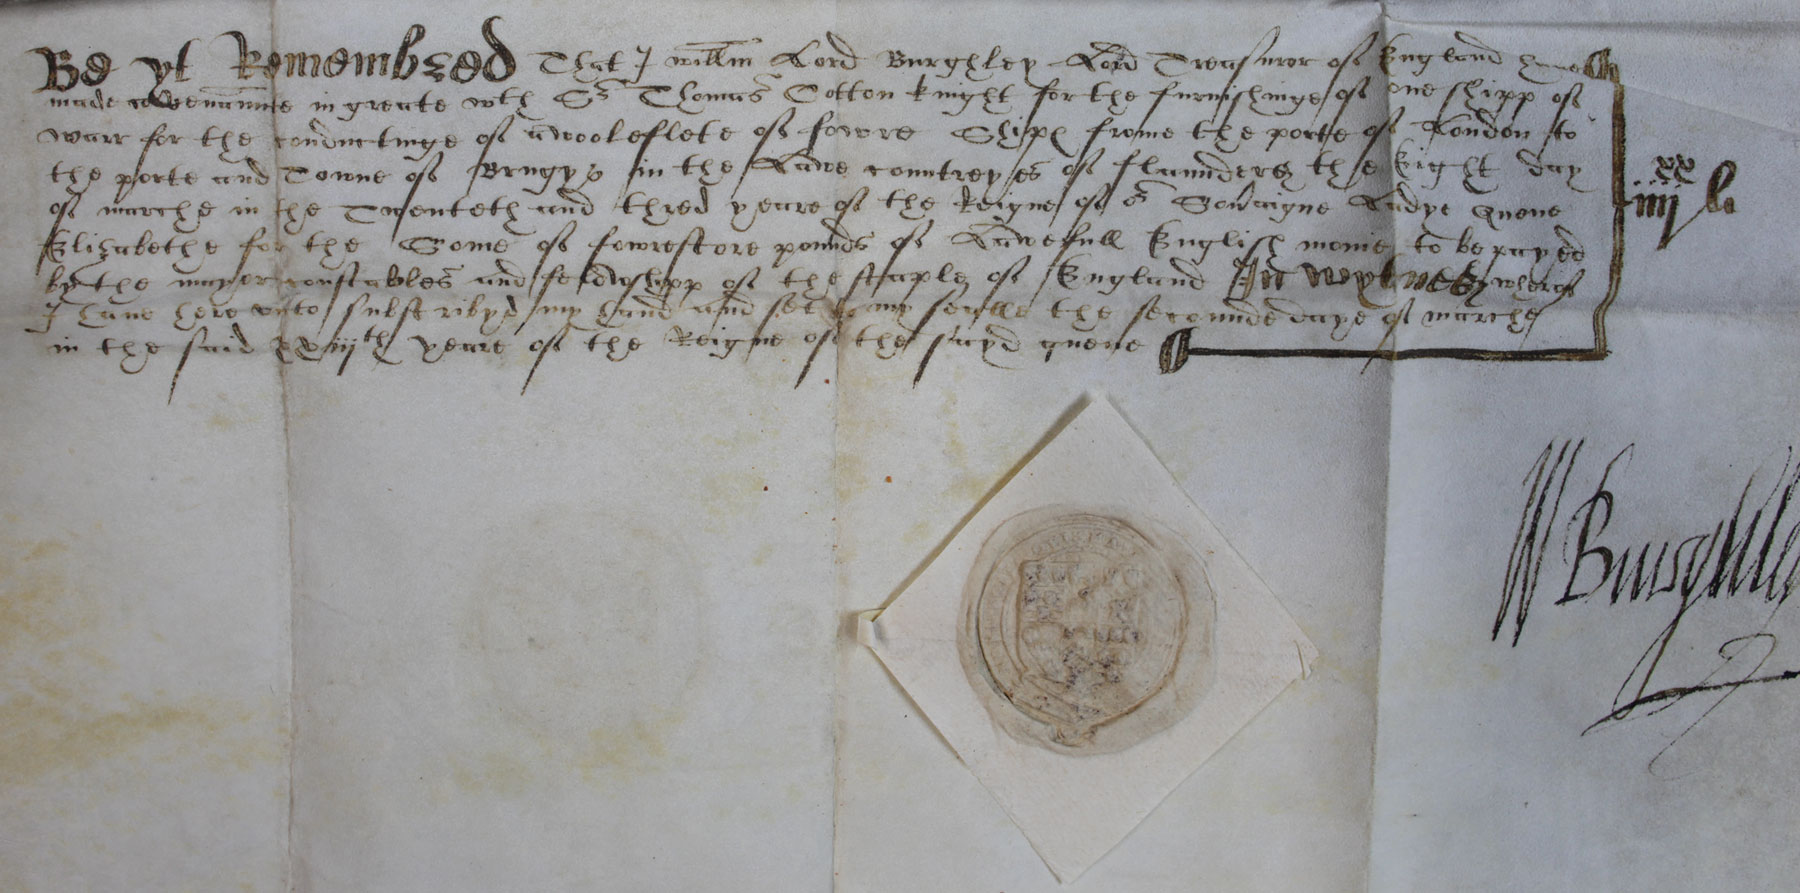 Be yt Remembred That I willm Lord Burghley Lord Treasuror of England have
made covenannte in greate wth Sr Thomas Cotton knight for the furnishinge of one shipp of
warr for the conductinge of a wooleflete of fowre Ships frome the porte of London to
the porte and Towne of Brugys in the Lawe countreyes of flaunders the Eight day
of marche in the Twenteth and thred yeare of the Reigne of or Sovaigne Ladye Quene
Elizabethe for the Some of fowrescore pounds of Lawefull English monie to be payed
by the mayer constables and felowshipp of the staple of England In wytnes wherof
I have here unto subscribyd my hand and set to my sealle the secounde daye of marche
in the said xxiijth yeare of the Reigne of the sayd quene
iiijxx li
W Burghley